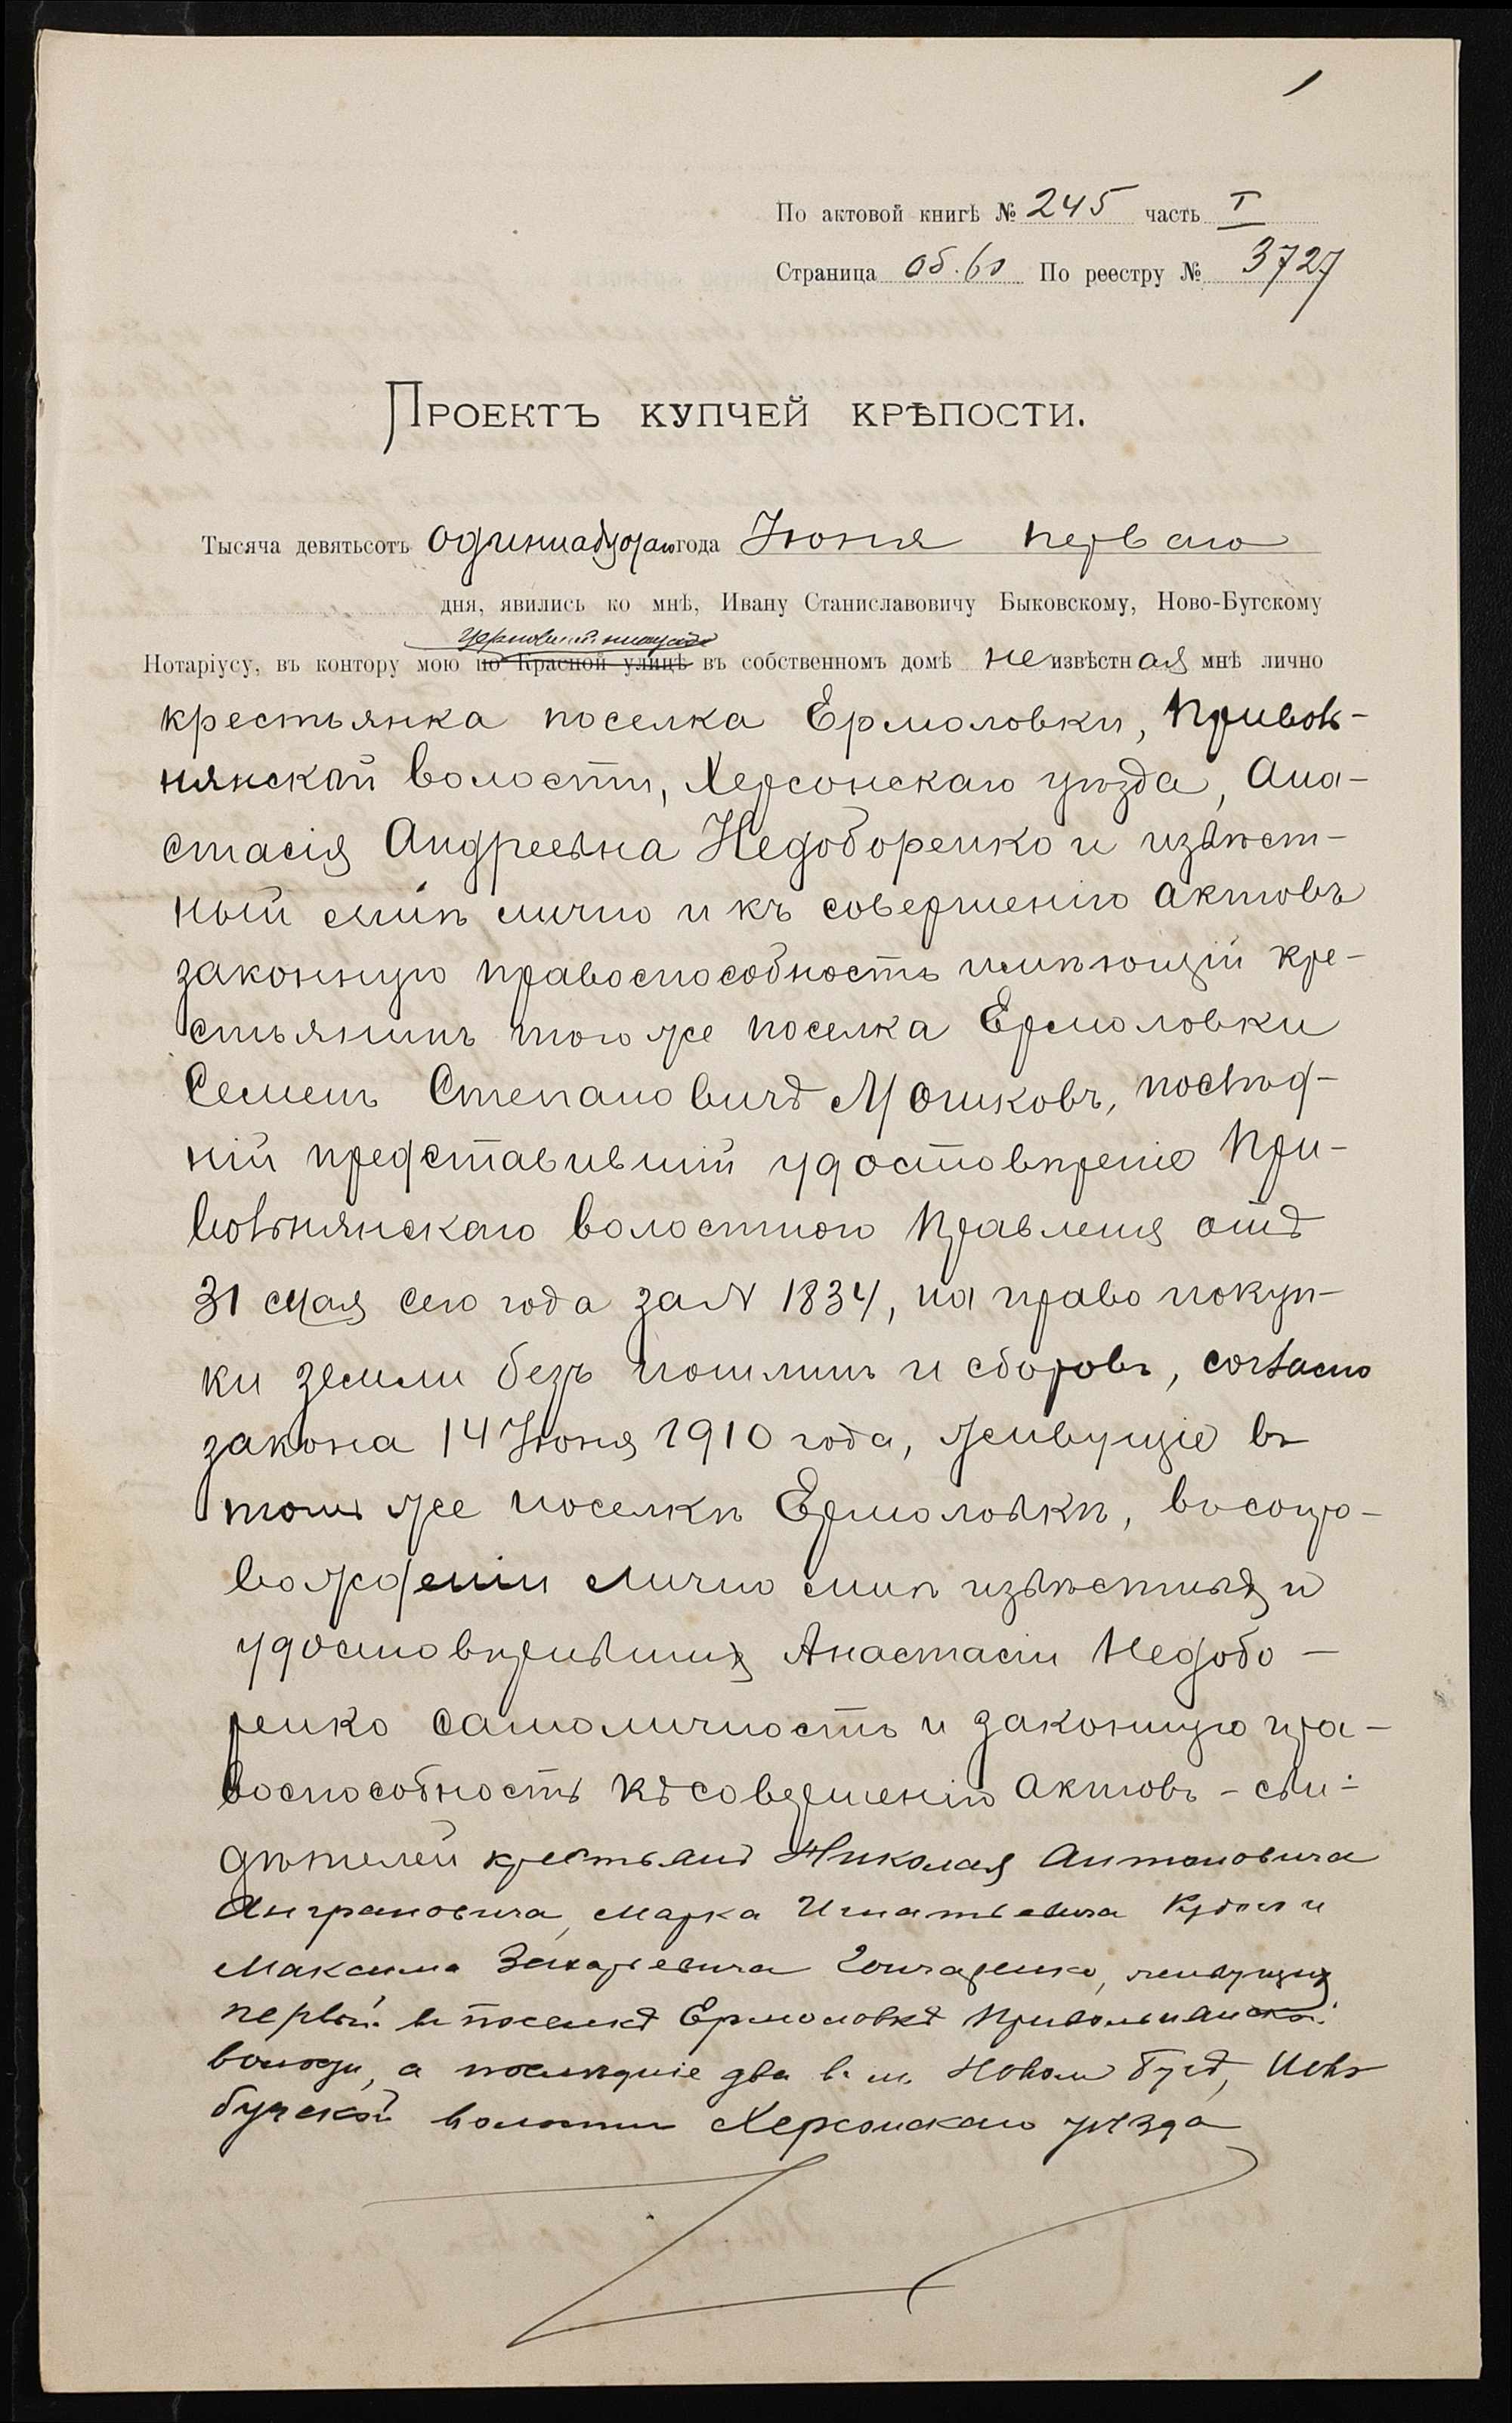 1
По актовой книгѣ № 245 часть I
Страница об. 60 По реестру № 3727
Проектъ купчей крѣпости.
Тысяча девятьсотъ одиннадцатаго года Іюня перваго
дня, явились ко мнѣ, Ивану Станиславовичу Быковскому, Ново-Бугскому
Нотаріусу, въ контору мою по Красной улицѣ въ собственномъ домѣ неизвѣстная мнѣ лично
крестьянка поселка Ермоловки, Приволь-
нянской волости, Херсонскаго уѣзда, Ана-
стасія Андреевна Недоборенко и извѣст-
ный мнѣ лично и къ совершенію актовъ
законную правоспособность имѣющій кре-
стьянинъ того же поселка Ермоловки
Семенъ Степановичъ Мошковъ, послѣд-
ній представившій удостовѣреніе При-
вольнянскаго волостного Правленія отъ
31 Мая сего года за N 1834, на право покуп-
ки земли безъ пошлинъ и сборовъ, согласно
закона 14 Іюня 1910 года, живущіе въ
томъ же поселкѣ Ермоловкѣ, въ сопро-
вожденіи лично мнѣ извѣстныхъ и
удостовѣрившихъ Анастасіи Недобо-
ренко самоличность и законную пра-
воспособность къ совершенію актовъ - сви-
дѣтелей крестьянъ Николая Антоновича
Марка Игнатьевича и
Максима Захарьевича Гончаренко, живущихъ
первый въ поселкѣ Ермоловкѣ Привольнянской
волости, а послѣдніе два въ м. Новомъ Бугѣ, Ново
бугской волости Херсонскаго уѣзда